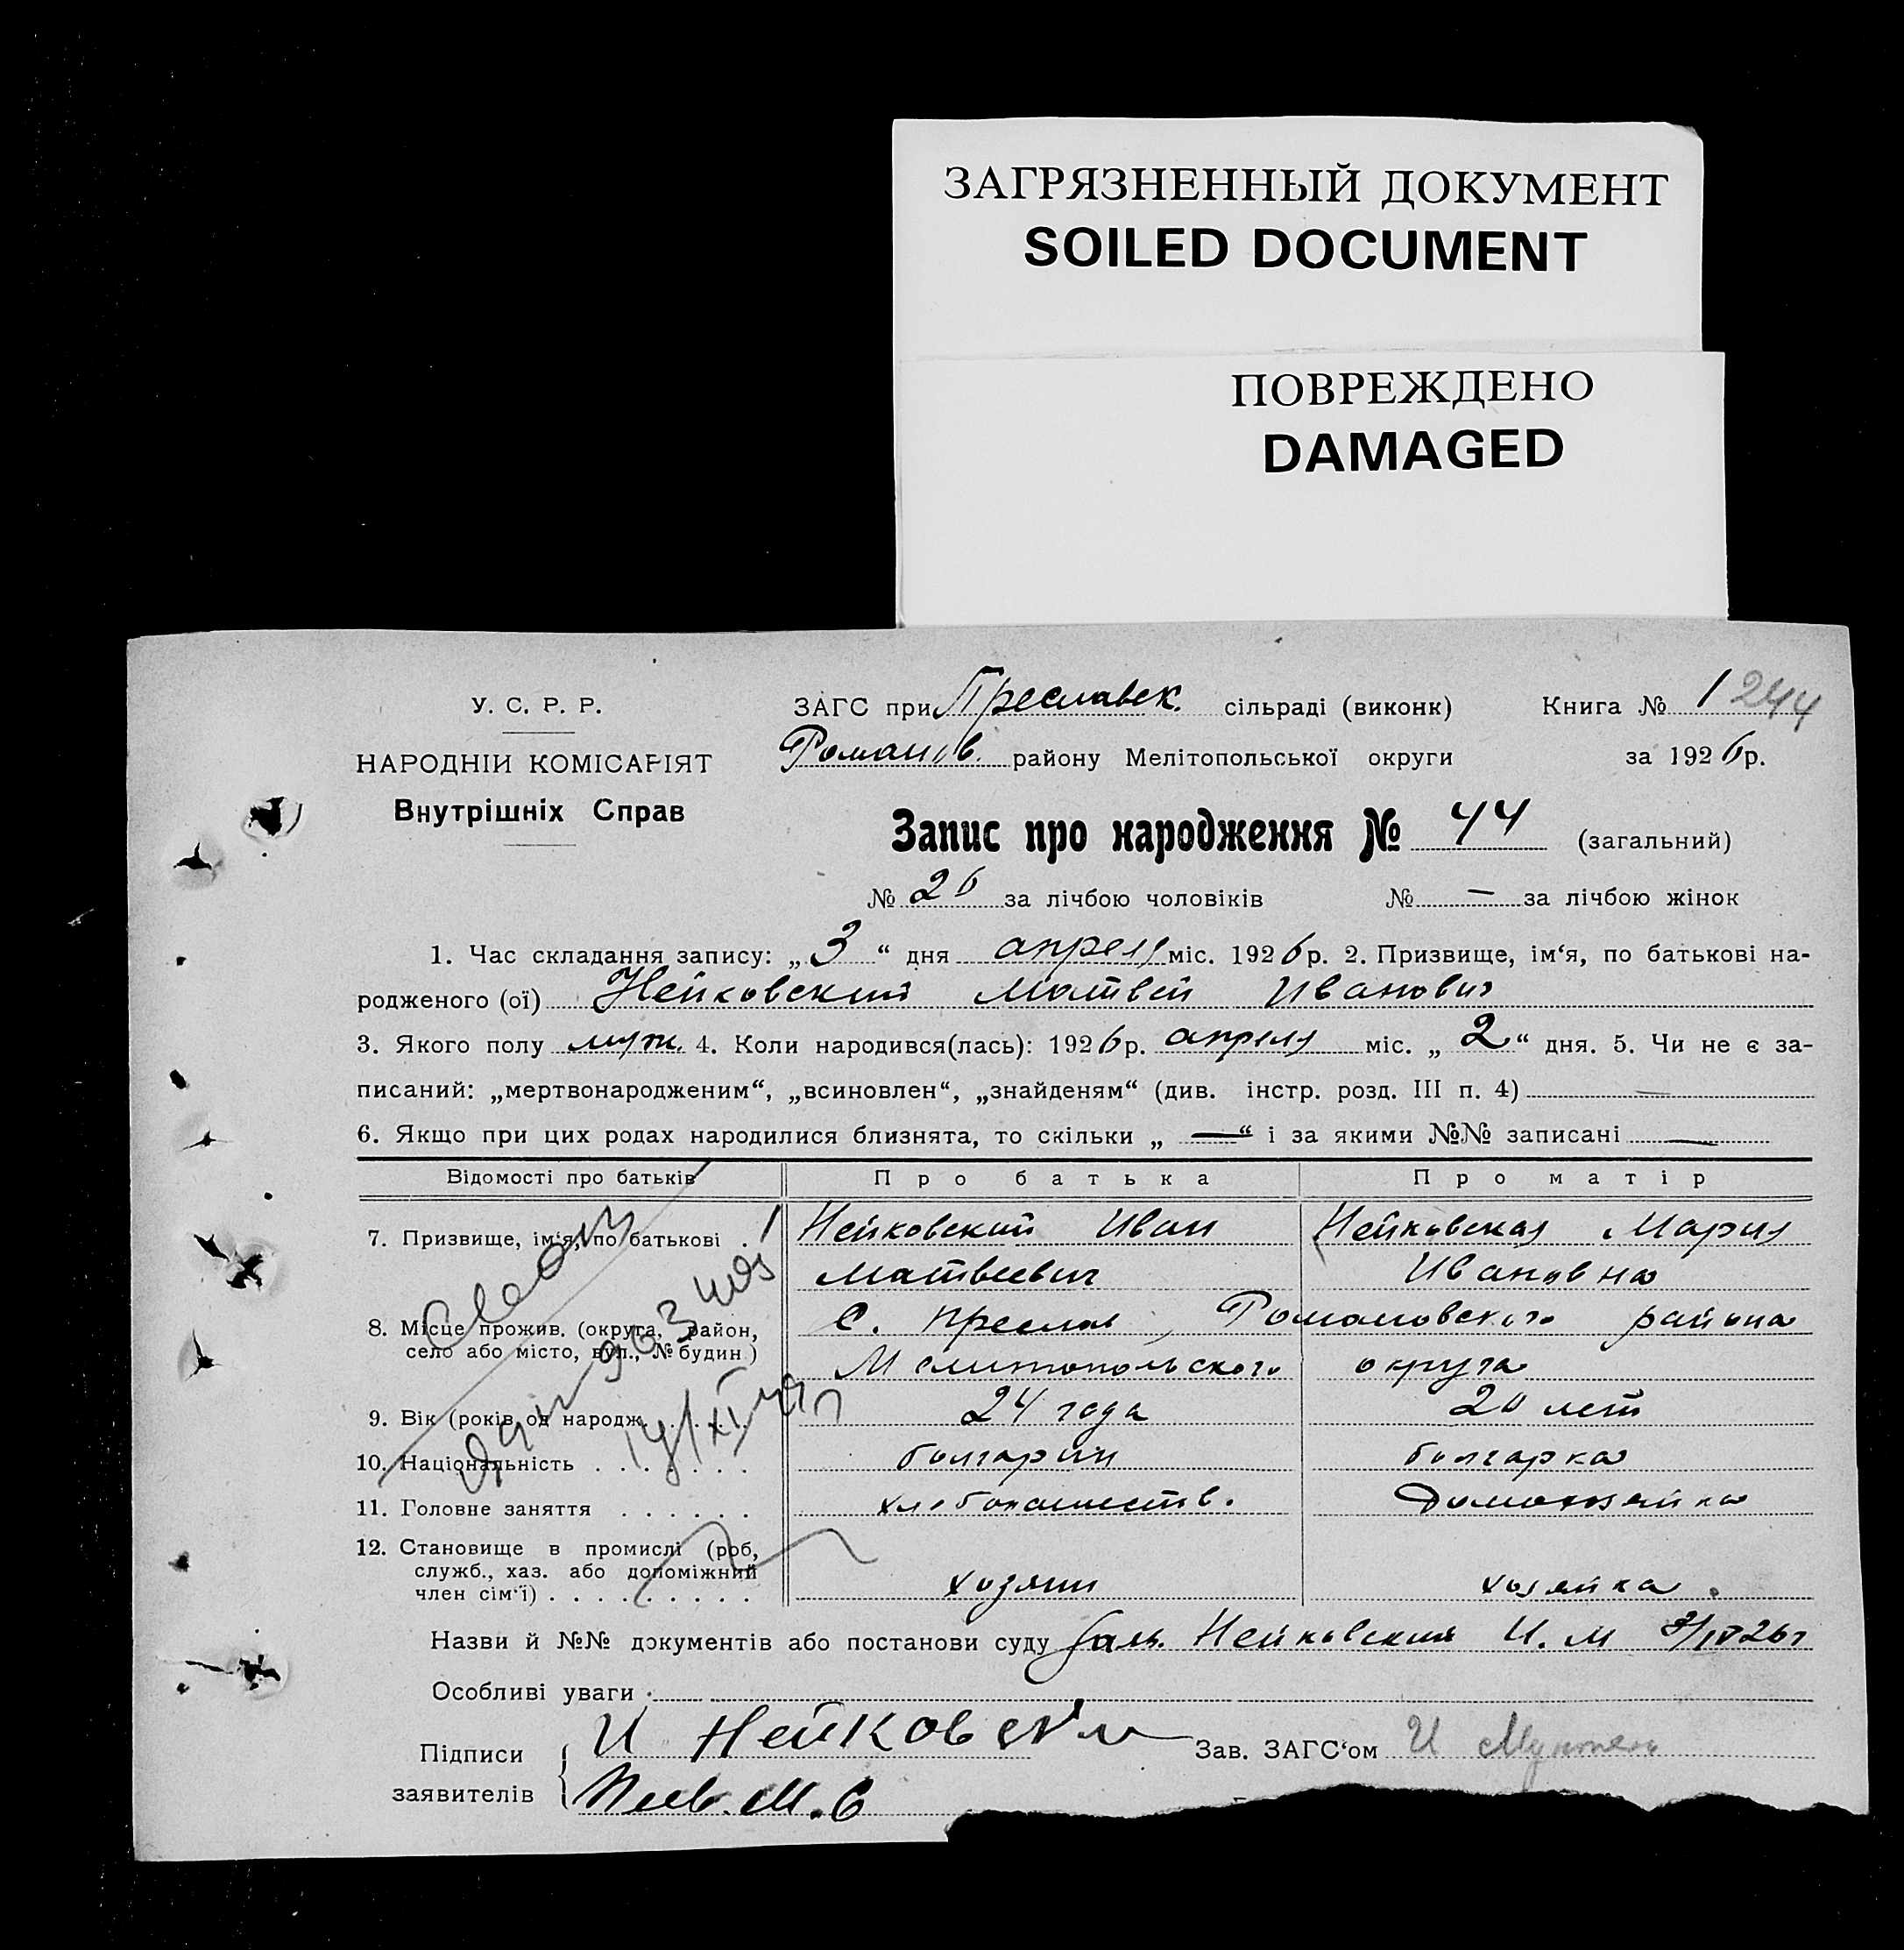 ЗАГРЯЗНЕННЫЙ ДОКУМЕНТ
SOILED DOCUMENT
ПОВРЕЖДЕНО
DAMAGED
У. С. Р. Р.
НАРОДНІЙ КОМІСАРІЯТ
Внутрішніх Справ
ЗАГС при Преславск. сільраді (виконк) Книга № 1 244
Романов. району Мелітопольської округи за 1926р.
Запис про народження № 44 (загальний)
№ 26 за лічбою чоловіків № — за лічбою жінок
1. Час складання запису: „ 3 “ дня апреля міс. 1926р. 2. Призвище, ім‘я, по батькові на-
родженого (ої) Нейковский Матвей Иванович
3. Якого полу муж. 4. Коли народився(лась): 1926р. апреля міс. „ 2 “ дня. 5. Чи не є за-
писаний: „мертвонародженим“, „всиновлен“, „знайденям“ (див. інстр. розд. III п. 4) —
6. Якщо при цих родах народилися близнята, то скільки „ — “ і за якими №№ записані —
Відомості про батьків Про батька Про матір
7. Призвище, ім‘я, по батькові . Нейковский Иван Нейковская Мария
Матвеевич Ивановна
8. Місце прожив. (округа, район, с. Преслав, Романовского района
село або місто, вул., № будин) Мелитопольского округа
9. Вік (років од народж. 24 года 20 лет
10. Національність . . . . . . . болгарин болгарка
11. Головне заняття . . . . . . хлебопашеств. Домохозяйка
12. Становище в промислі (роб,
служб., хаз. або допоміжний
член сім‘ї) . . . . . . . . . хозяин хозяйка.
Назви й №№ документів або постанови суду Нейковский И. М 3/IV 26г
Особливі уваги
Підписи И Нейковски Зав. ЗАГС‘ом И
заявителів М. С